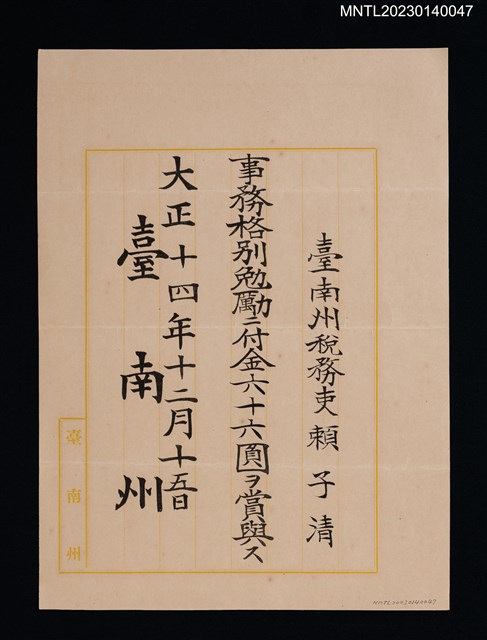 MNTL20230140047
臺南州稅務吏 賴子清
事務格別勉勵ニ付金六十六圓ヲ賞與ス
大正十四年十二月十五日
臺南州
臺南州
MNTL20230140047